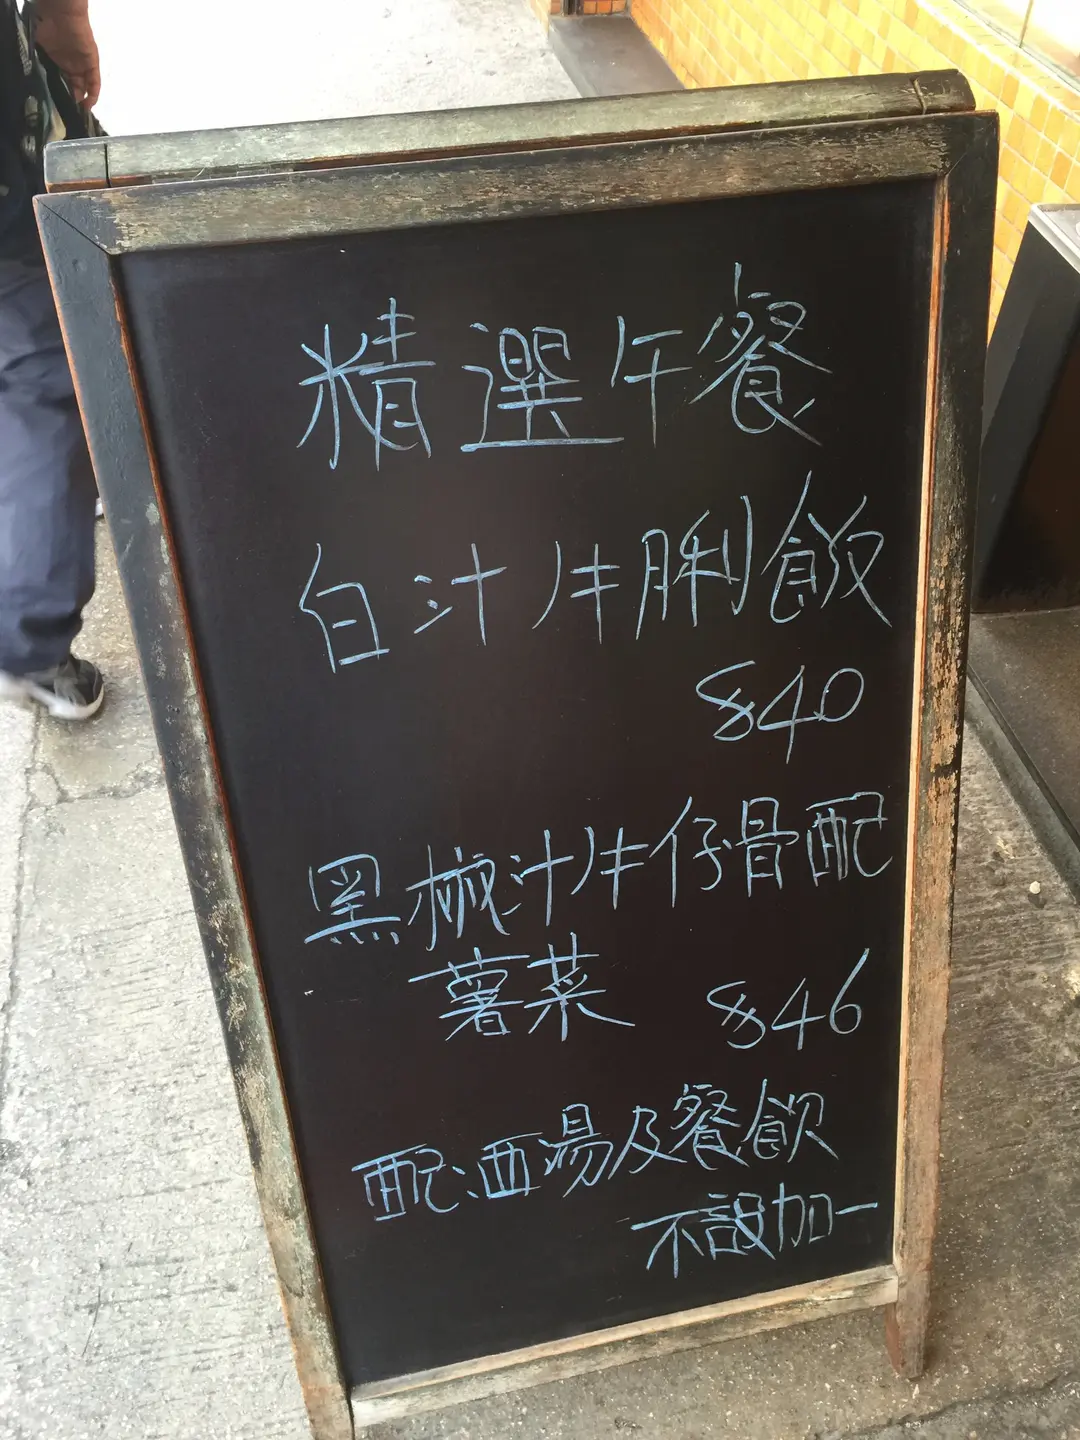 精選午餐
白汁牛脷飯
$40
黑椒汁牛仔骨配
薯菜 $46
配洒湯及餐飲
不設加一